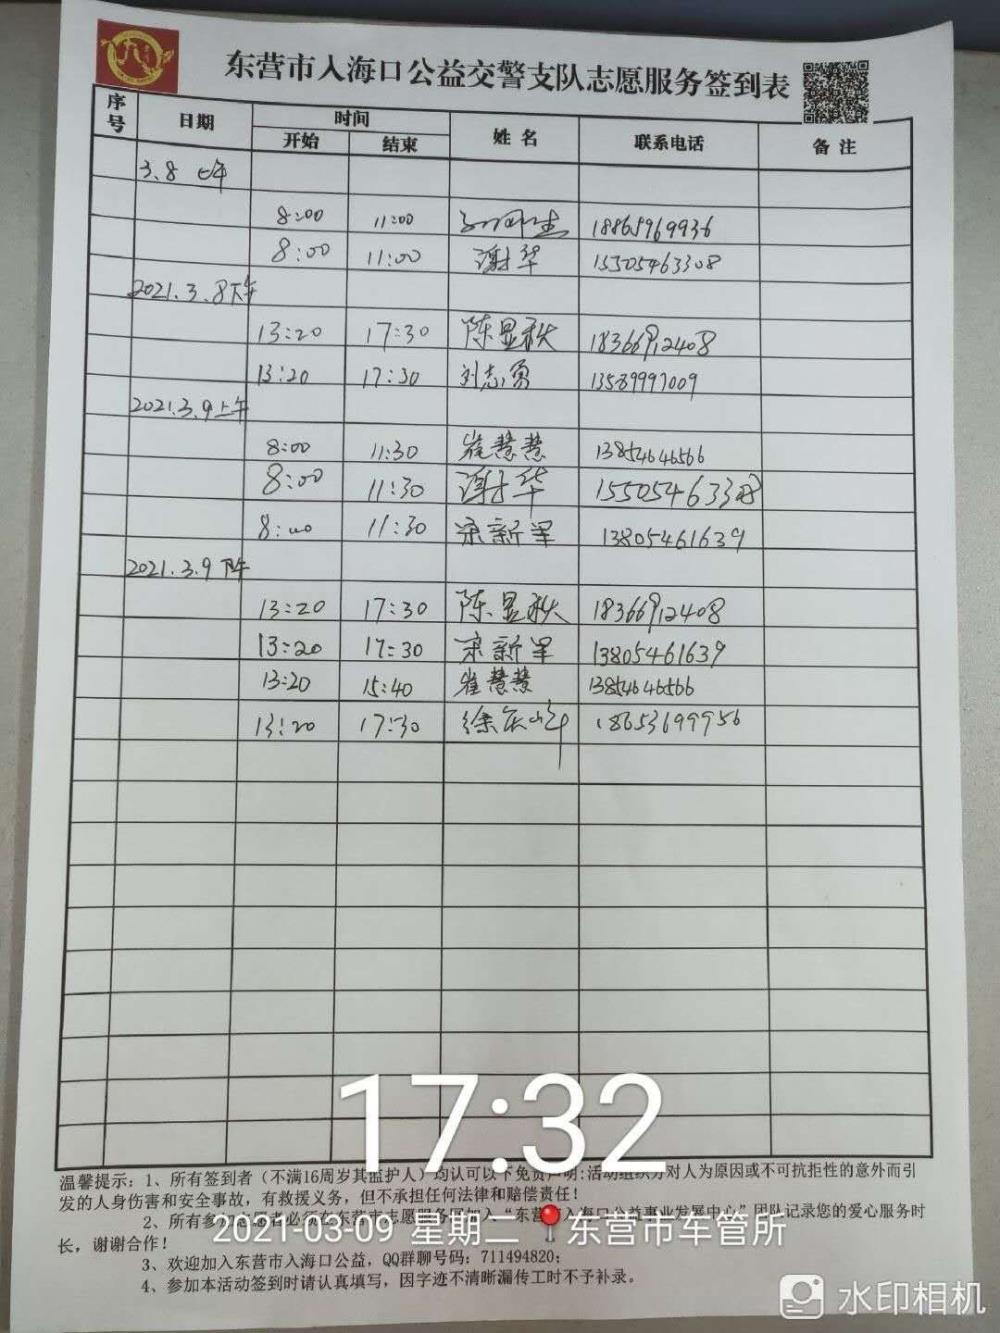 东营市入海口公益交警支队志愿服务签到表
序号 日期 时间 姓名 联系电话 备注
开始 结束
3.8 上午
8:00 11:00 18865969936
8:00 11:00 谢华 15505463308
2021.3.8下午
13:20 17:30 陈显秋 18366912408
13:20 17:30 刘志勇 13589997009
2021.3.9上午
8:00 11:30 崔慧慧 13854646566
8:00 11:30 谢华 15505463308
8:00 11:30 宋新军 13805461639
2021.3.9 下午
13:20 17:30 陈显秋 18366912408
13:20 17:30 宋新军 13805461639
13:20 15:40 崔慧慧 13854646566
13:20 17:30 徐 18653699956
17:32
温馨提示：1、所有签到者（不满16周岁其监护人）均认可以下免责声明:活动组织方对人为原因或不可抗拒性的意外而引
发的人身伤害和安全事故，有救援义务，但不承担任何法律和赔偿责任！
2、所有参加志愿者必须在东营市志愿服务网加入“东营市入海口公益事业发展中心”团队记录您的爱心服务时
2021-03-09 星期二 东营市车管所
长，谢谢合作！
3、欢迎加入东营市入海口公益，QQ群聊号码：711494820；
4、参加本活动签到时请认真填写，因字迹不清晰漏传工时不予补录。
水印相机